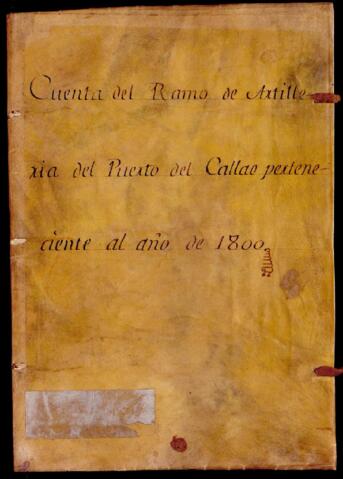 Cuenta del Ramo de Artille-
ria del Puerto del Callao pertene-
ciente al año de 1800